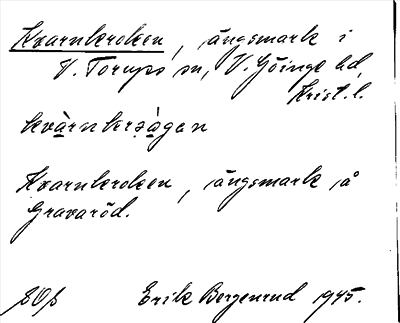 Kvarnkroken, ängsmark i
V. Torups sn, V. Göinge hd,
Krist. l.
Kvarnkroken, ängsmark på
Gravaröd.
Erik Bergenrud 1945.